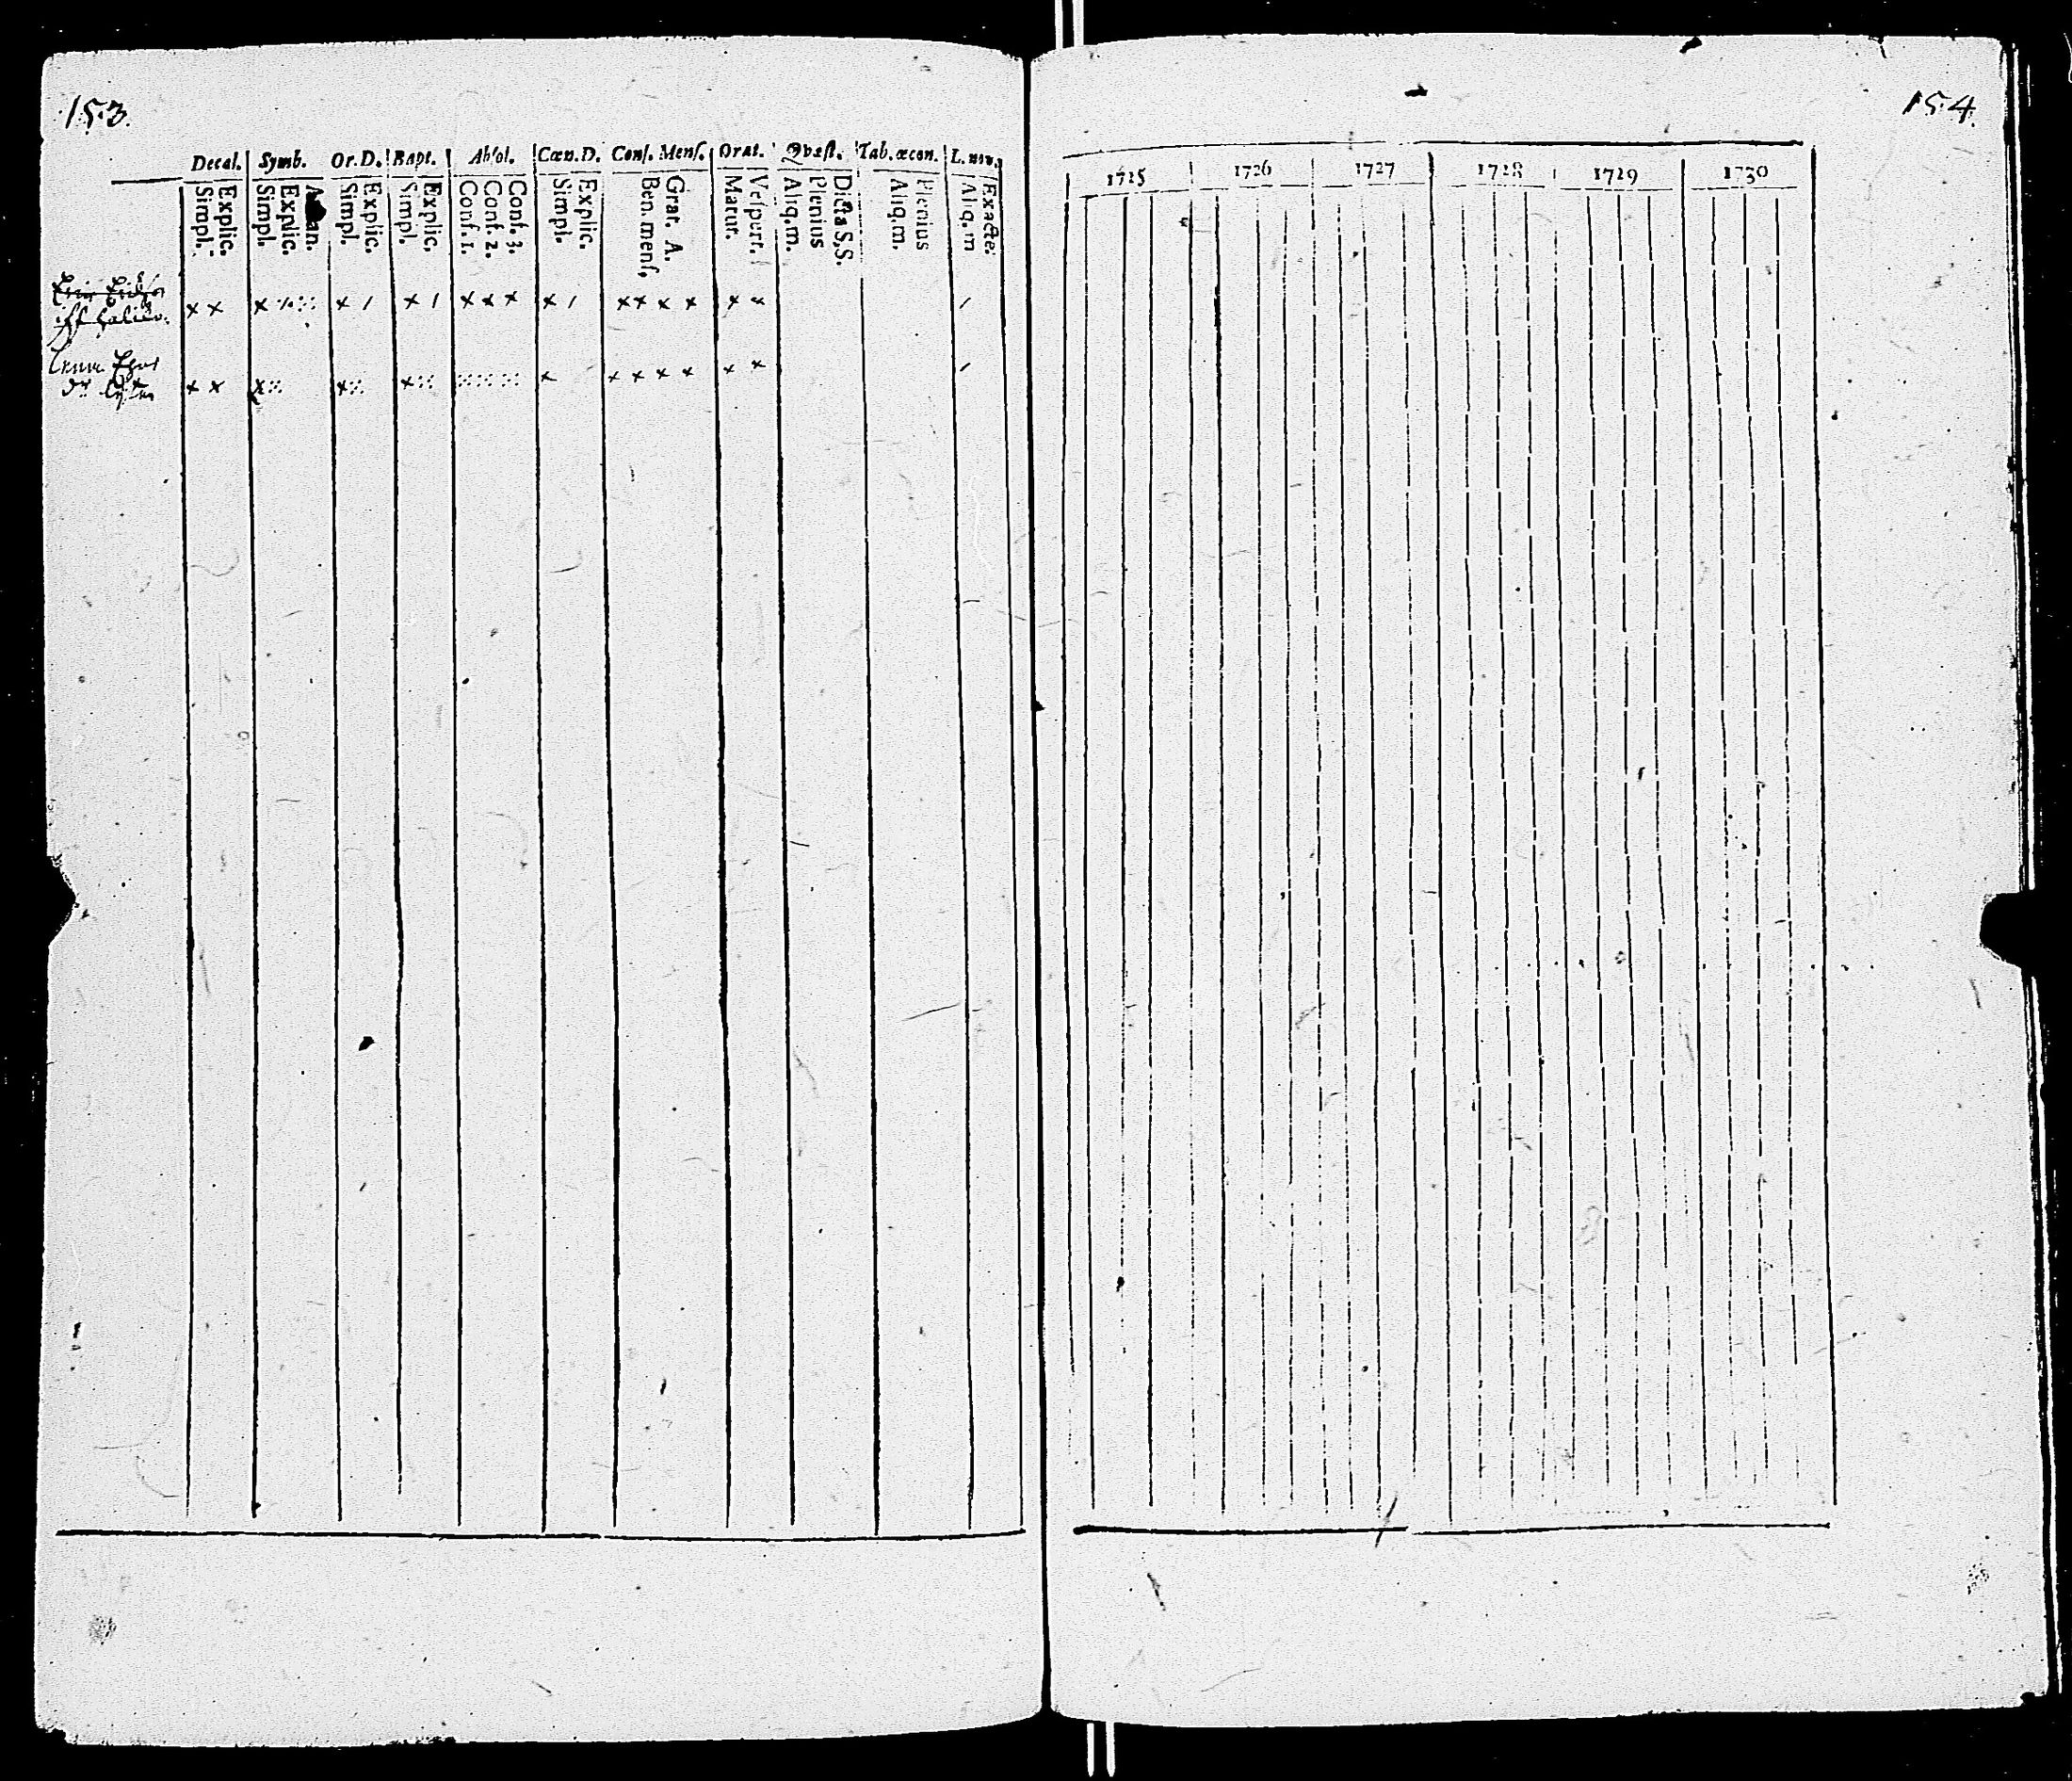 153.
Decal. Symb. Or. D. Bapt. Absol. Cœn. D. Conf. Menſ. Orat. Qvæſt. Tab. œcon. L. min.
Explic.
Simpl.
Explic.
Simpl.
Explic.
Simpl.
Explic.
Simpl.
Conf. 3.
Conf. 2.
Conf. 1.
Explic.
Simpl.
Grat. A.
Ben. menſ.
Veſpert.
Matut.
Dicta S,S.
Plenius
Aliq. m.
Plenius
Aliq. m.
Exacte.
Aliq. m
x x x x / x / x x x x / x x x x x x /
x x x x x x x x x x x x x /
154.
1725 1726 1727 1728 1729 1730